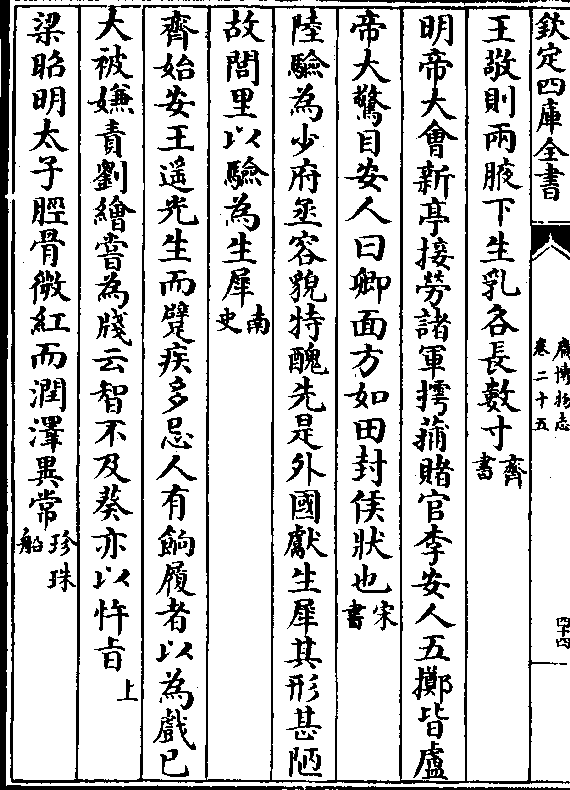 欽定四庫全書
廣博物志
卷二十五
四十四
王敬則兩腋下生乳各長數寸齊書
明帝大會新亭接勞諸軍摴蒱賭官李安人五擲皆盧
帝大驚目安人曰卿面方如田封侯狀也宋書
陸驗為少府丞容貌特醜先是外國獻生犀其形甚陋
故閭里以驗為生犀南史
齊始安王遥光生而躄疾多忌人有餉履者以為戲已
大被嫌責劉繪嘗為牋云智不及葵亦以忤旨上
梁昭明太子脛骨微紅而潤澤異常珍珠船